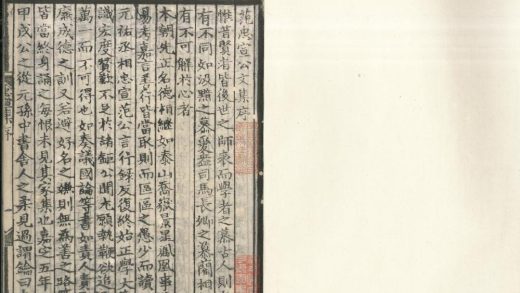 范忠宣公文集序
惟昔賢者皆後世之師表而學者之慕古人則
有不同如汲黯之慕爰盎司馬長卿之慕藺相
有不可解於心者
本朝先正名德相繼如泰山喬嶽景星鳳凰事
易考嘉言至行皆當取則而區區之愚少而讀
元祐丞相忠宣范公言行錄反復終始正學大
識宏度贊歎不足於諸鉅公間尤願執鞭欲追
萬一而不可得也如奏議國論等書如責人責
廉成德之訓又若避好名之嫌則無為善之路
皆當終身誦之每恨未見其家集也嘉定五年
甲戌公之從元孫中書舍人之柔見過謂鑰曰